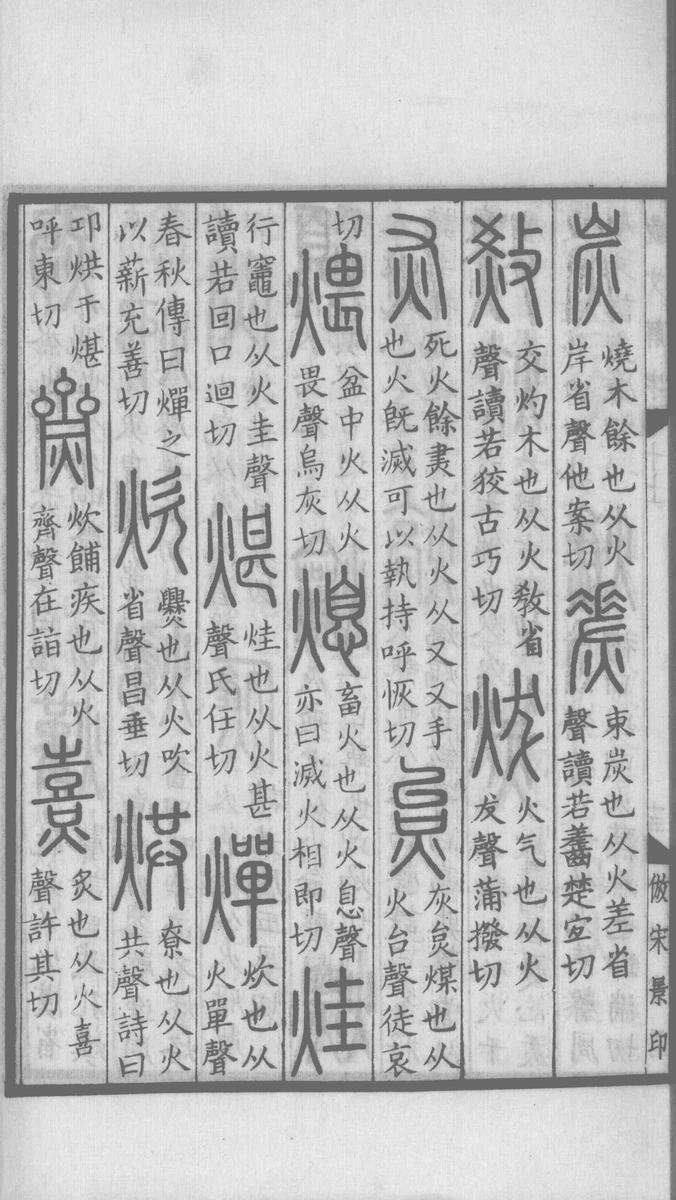 炭
燒木餘也从火
岸省聲他案切
束炭也从火差省
聲讀若齹楚宜切
交灼木也从火教省
聲讀若狡古巧切
炦
火气也从火
犮聲蒲撥切
灰
死火餘㶳也从火从又又手
也火旣滅可以執持呼恢切
炱
灰炱煤也从
火台聲徒哀
切
煨
盆中火从火
畏聲烏灰切
熄
畜火也从火息聲
亦曰滅火相即切
烓
行竈也从火圭聲
讀若回口迥切
煁
烓也从火甚
聲氏任切
燀
炊也从
火單聲
春秋傳曰燀之
以薪充善切
炊
爨也从火吹
省聲昌垂切
烘
尞也从火
共聲詩曰
卬烘于煁
呼東切
齌
炊餔疾也从火
齊聲在詣切
熹
炙也从火喜
聲許其切
倣宋景印